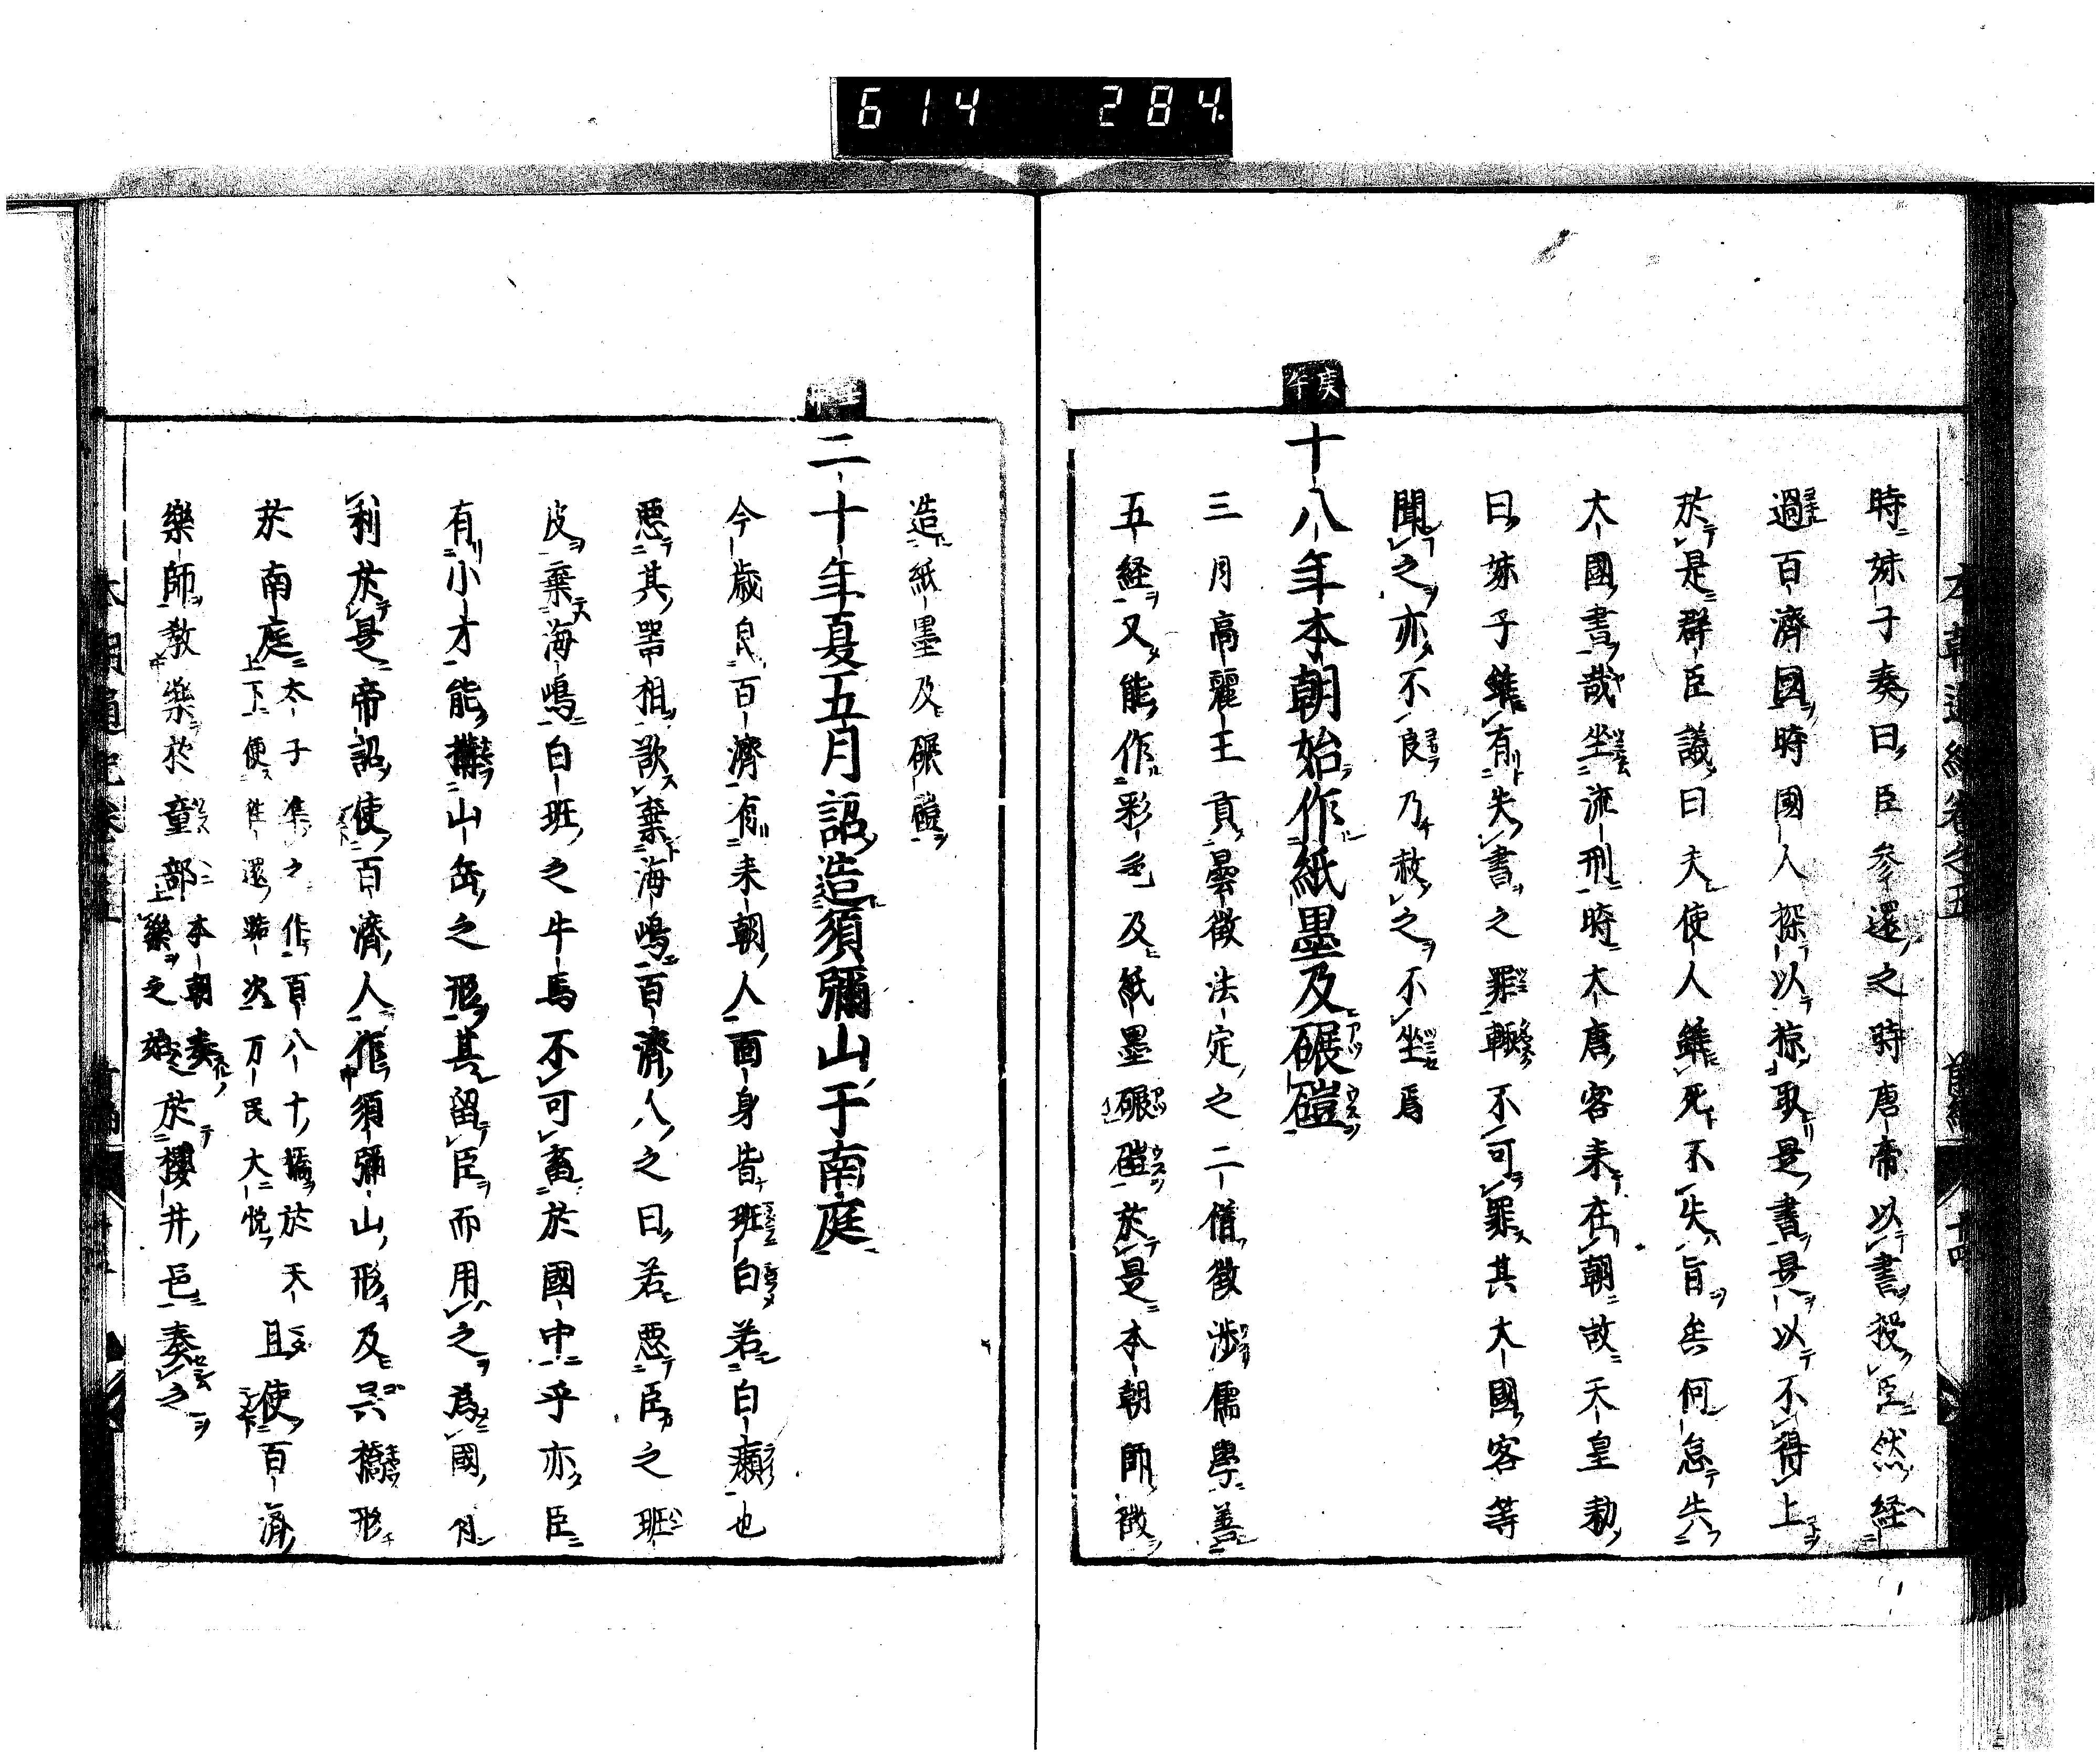 614 284
時妹子奏曰臣参還之時唐帝以書授臣然経
過百濟國時國人探以掠取是書是以不得上
於是群臣議曰夫使人雖死不失旨矣何怠失
大國書哉坐流刑時大唐客来在朝故天皇勅
曰妹子雖有失書之罪輙不可罪其大國客等
聞之亦不良乃赦之不坐焉
庚午
十八年本朝始作紙墨及碾磑
三月高麗王貢曇徴法定之二僧徴渉儒學善
五経又能作彩色及紙墨碾磑於是本朝師徴
造紙墨及碾磑
壬申
二十年夏五月詔造須彌山于南庭
今歳自百濟有来朝人面身皆斑白若白癩也
悪其異相欲棄海嶋百濟人之曰若悪臣之斑
皮棄海嶋白斑之牛馬不可畜於國中乎亦臣
有小才能構山岳之形其留臣而用之為國有
利於是帝詔使百濟人作須彌山形及呉橋形
於南庭太子准之作百八十橋於天上下便往還路次万民大悦且使百濟
樂師教樂於童部本朝奏樂之始於櫻井邑奏之